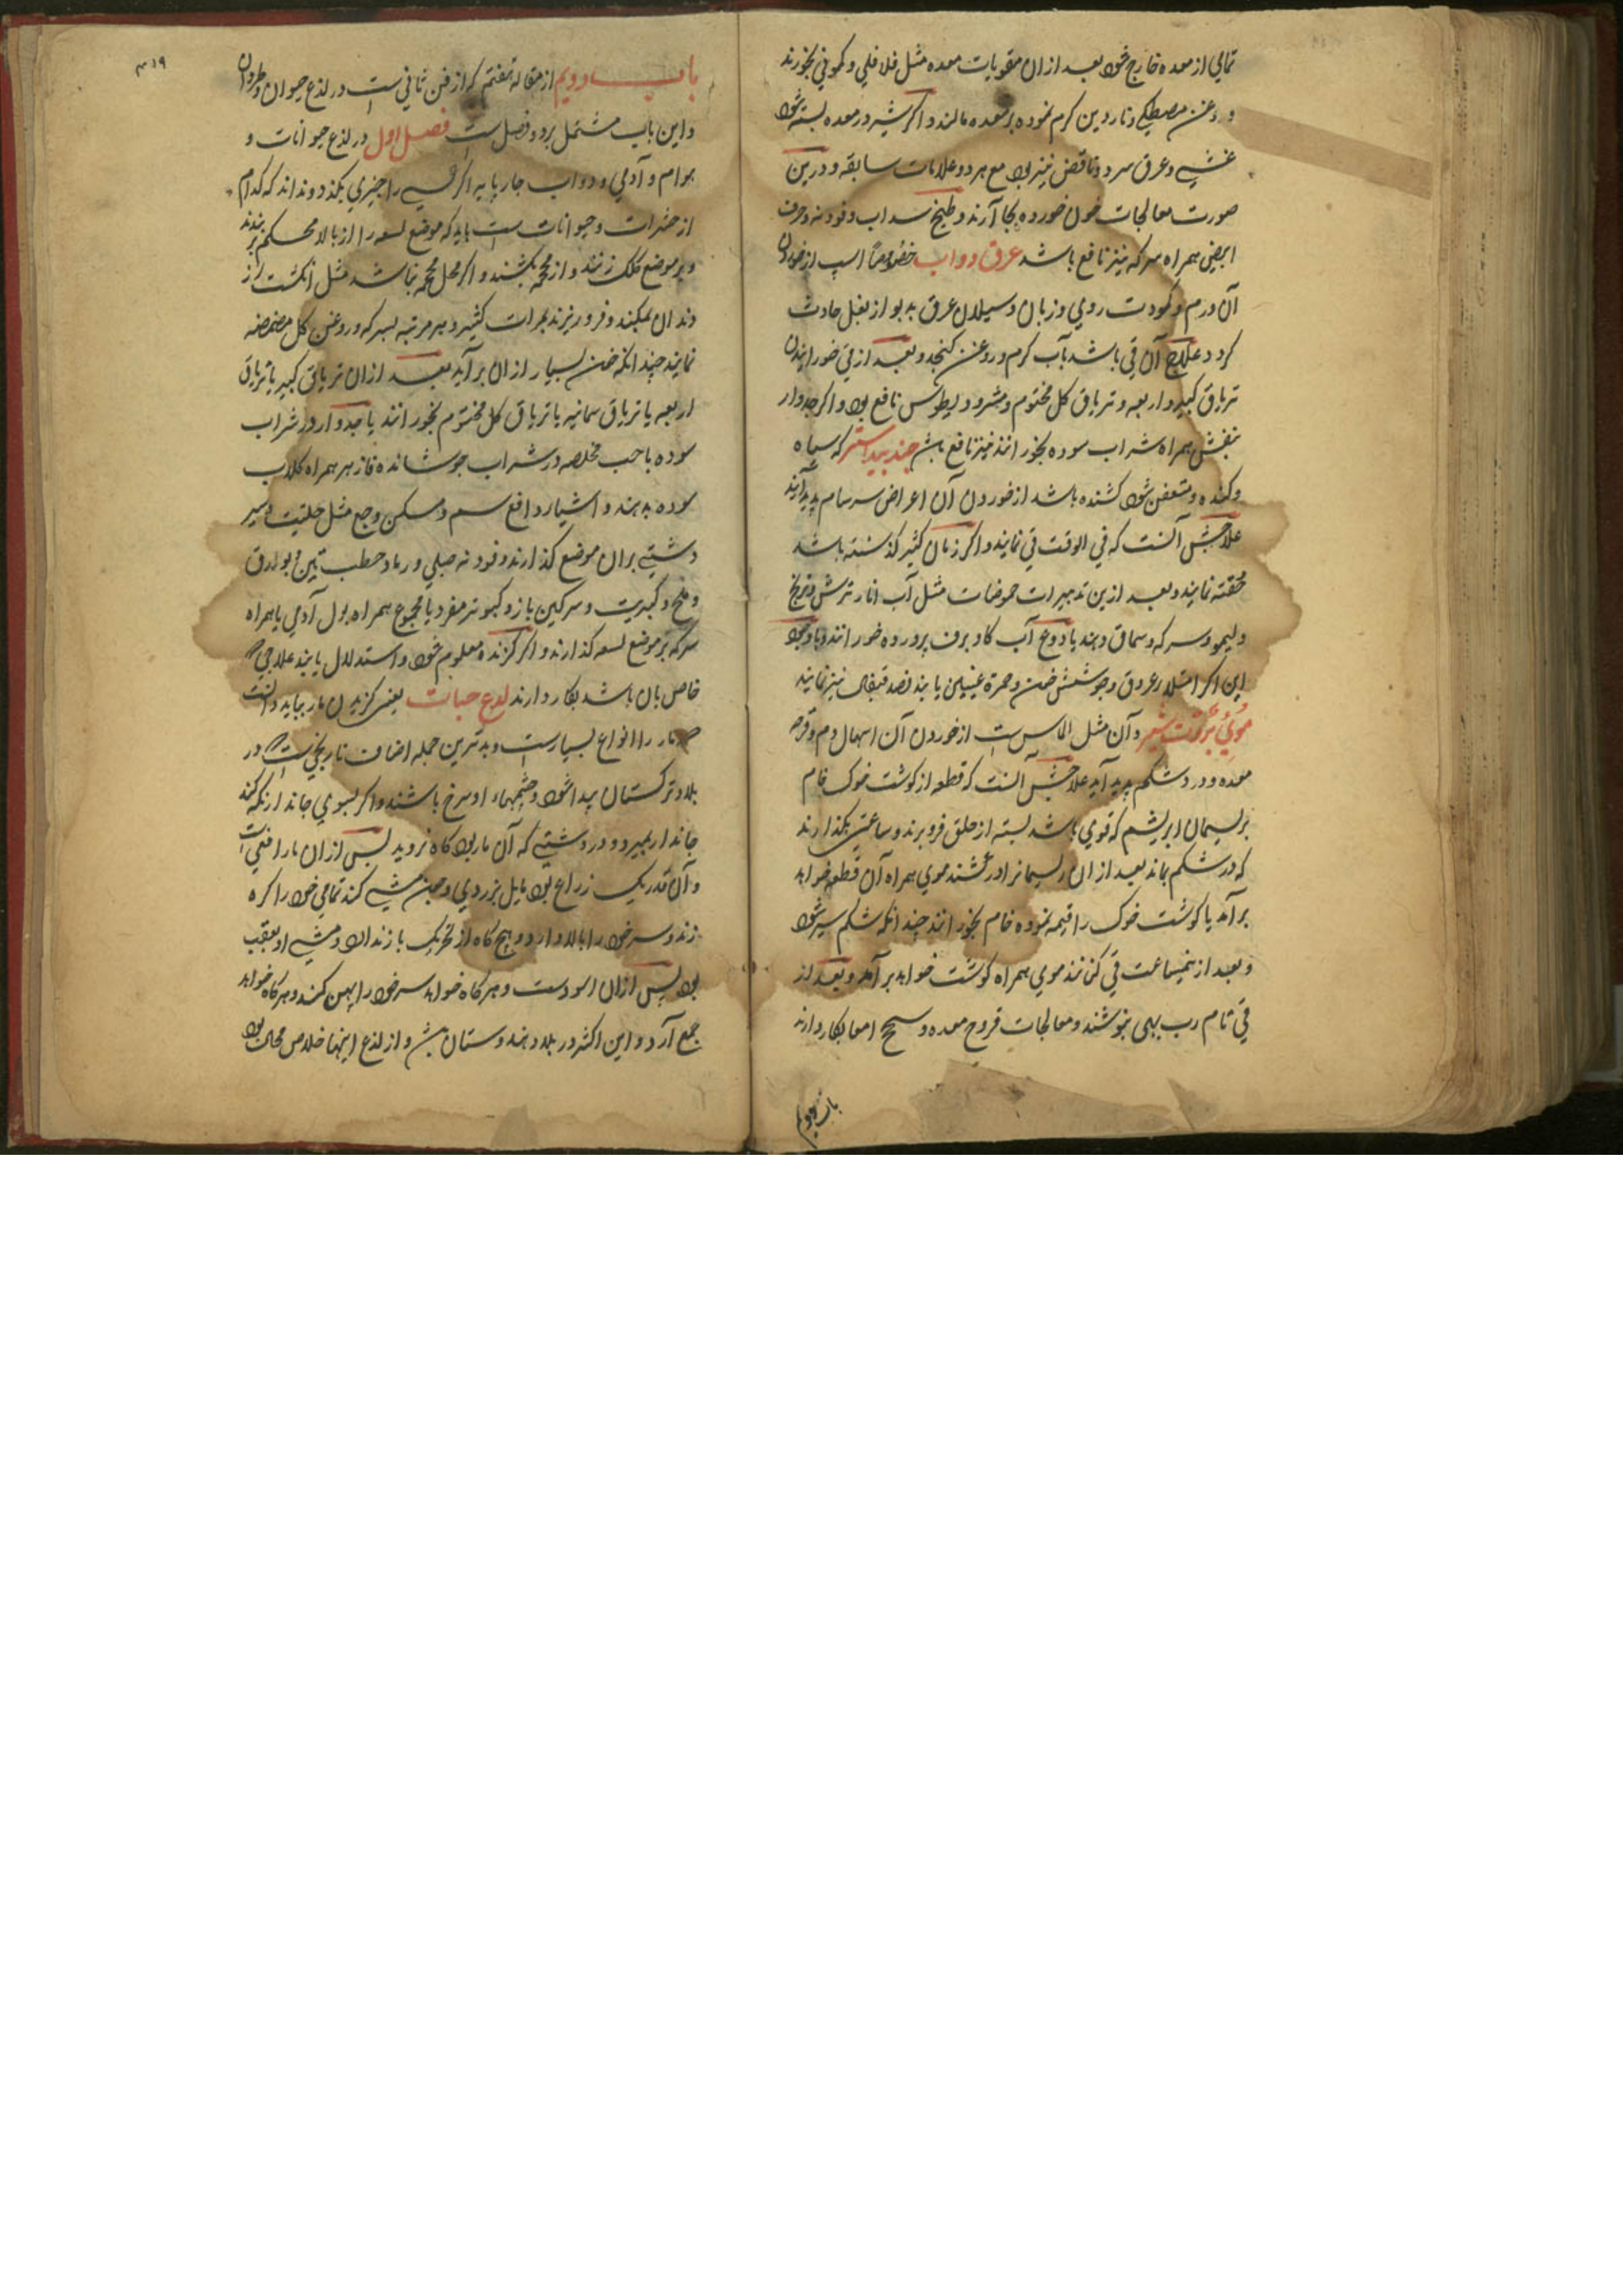 تمامی از معده خارج شود بعد ازان مقویات معده مثل فلافلی و کمونی بخورند
و روغن مصطکی و ناردین کرم نموده بر معده مالند و اکر شیر در معده بسته شود
غشی و عرق سرد و نافض نیز بود مع هر دو علامات سابقه و درین
صورت معالجات خون خورده بجا آرند و طبیخ سداب و فودنه و حرف
ابیض همراه سرکه نیز نافع باشد عرق دواب خصوصاً اسپ از خوردن
آن ورم و کمودت روی و زبان و سیلان عرق بدبو از بغل حادث
کردد علاج آن قی باشد بآب کرم و روغن کنجد و بعد از قی خورانیدن
تریاق کبیر و اربعه و تریاق کل مختوم و مثرودیطوس نافع بود و اکر جدوار
بنفش همراه شراب سوده بخورانند نیز نافع باشد جندبیدستر که سیاه
و کنده و متعفن شود کشنده باشد از خوردن آن اعراض سرسام پدید آیند
علاجش آنست که فی الوقت قی نمایند و اکر زمان کثیر کذشته باشد
حقنه نمایند و بعد ازین تدبیرات حموضات مثل آب انار ترش و ترنج
و لیمو و سرکه و سماق دهند یا دوغ آب کاو برف پرورده خورانند و باوجود
این اکر امتلاء عروق و جوشش خون و حمرة عینین یابند فصد قیفال نیز نمایند
موی بروت شیر و آن مثل الماس است از خوردن آن اسهال دم و قرحه
معده و درد شکم پدید آید علاجش آنست که قطعه از کوشت خوک خام
بریسمان ابریشم که قوی باشد بسته از حلق فرو برند و ساعتی بکذارند
که در شکم بماند بعد ازان ریسمانرا در کشند موی همراه آن قطعه خواهد
برآمد یا کوشت خوک را قیمه نموده خام بخورانند چندانکه شکم سیر شود
و بعد از نیمساعت قی کنانند موی همراه کوشت خواهد برآمد و بعد از
قی تمام رب بهی بنوشند و معالجات قروح معده و سحج امعا بکار دارند
باب دویم
۳۱۹
باب دویم از مقاله هفتم که از فن ثانی ست در لذع حیوان و طرد آن
و این باب مشتمل بر دو فصل ست فصل اول در لذع حیوانات و
هوام و آدمی و دواب چارپایه اکر کسی را چیزی بکزد و نداند که کدام
از حشرات و حیوانات ست باید که موضع لسعه را از بالا محکم بربندند
و بر موضع کلک زنند و از محجمه بکشند و اکر محل محجمه نباشد مثل انکشت از
دندان بمکند و فرو ریزند بمرات کثیر و هر مرتبه بسرکه و روغن کل مضمضه
نمایند چندانکه خون بسیار ازان برآید بعد ازان تریاق کبیر یا تریاق
اربعه یا تریاق ثمانیه یا تریاق کل مختوم بخورانند یا جدوار در شراب
سوده یا حب مخلصه در شراب جوشانده فازهر همراه کلاب
سوده بدهند و اشیاء دافع سم و مسکن وجع مثل حلتیت و سیر
دشتی بران موضع کذارند و فودنه جبلی و رماد حطب تین و بورق
و ملح و کبریت و سرکین باز و کبوتر مفرد یا مجموع همراه بول آدمی یا همراه
سرکه بر موضع لسعه کذارند و اکر کزنده معلوم شود و استدلال یابند علاجی که
خاص بآن باشد بکار دارند لدغ حیات یعنی کزیدن مار بباید دانست
که مار را انواع بسیارست و بدترین جمله اصناف ست که در
بلاد ترکستان پیدا شود و چشمهاء او سرخ باشند و اکر بسوی جاندار نکه کند
جاندار بمیرد و در دشتی که آن مار بود کاه نروید پس ازان مار افعی است
و آن قدر یک زراع بود مایل بزردی و چون مشی کند تمامی خود را کره
زند و سر خود را بالا دارد و هیچ کاه از تحریک باز نداند و مشی او بعقب
بود پس ازان اسودست و هر کاه خواهد سر خود را پهن کند و هر کاه خواهد
جمع آرد و این اکثر در بلاد هندوستان باشد و از لذع اینها خلاص محال بود